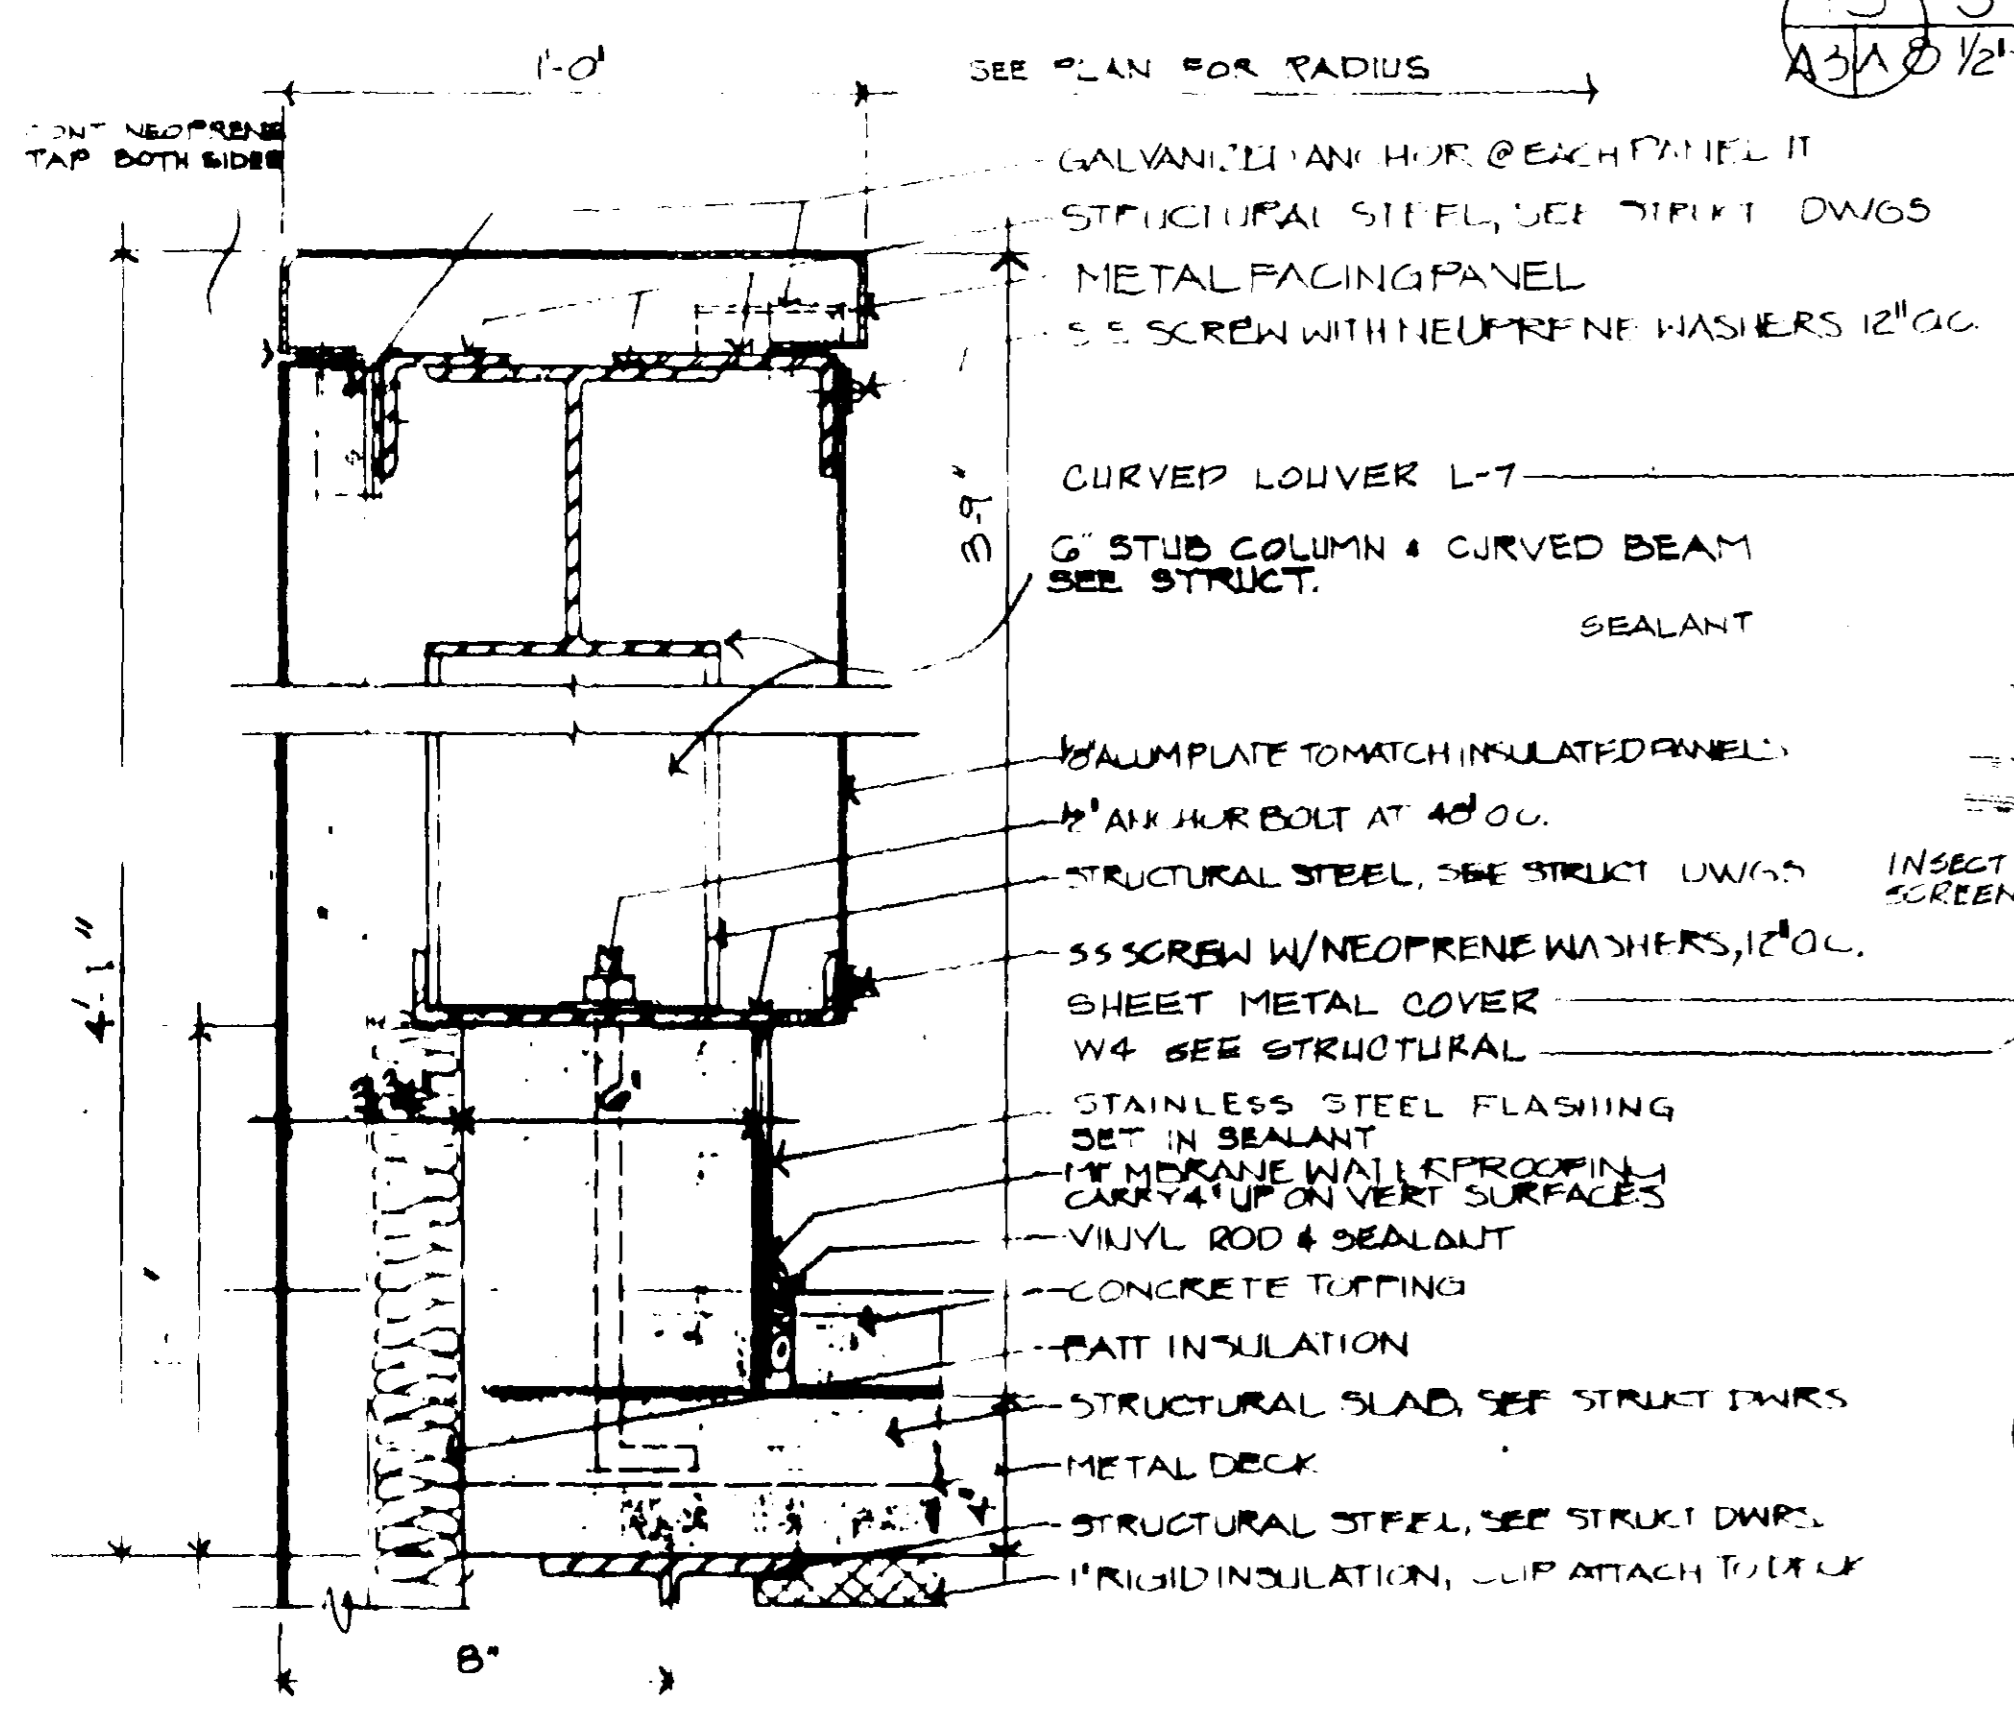 1'-0"
SEE PLAN FOR RADIUS
A3 A8 1/2"
CONT NEOPRENE
TAP BOTH SIDES
GALVANIZED ANCHOR @ EACH PANEL JT
STRUCTURAL STEEL, SEE STRUCT DWGS
METAL FACING PANEL
S S SCREW WITH NEOPRENE WASHERS 12" O.C.
CURVED LOUVER L-7
3'-9"
6" STUB COLUMN & CURVED BEAM
SEE STRUCT.
SEALANT
1/8" ALUM PLATE TO MATCH INSULATED PANELS
1/2" ANCHOR BOLT AT 48" O.C.
STRUCTURAL STEEL, SEE STRUCT DWGS
INSECT
SCREEN
4'-1"
SS SCREW W/NEOPRENE WASHERS, 12" O.C.
SHEET METAL COVER
W4 SEE STRUCTURAL
6"
STAINLESS STEEL FLASHING
SET IN SEALANT
MEMBRANE WATERPROOFING
CARRY 4" UP ON VERT SURFACES
VINYL ROD & SEALANT
CONCRETE TOPPING
BATT INSULATION
STRUCTURAL SLAB, SEE STRUCT DWGS
METAL DECK
4"
STRUCTURAL STEEL, SEE STRUCT DWGS.
1" RIGID INSULATION, CLIP ATTACH TO DECK
8"